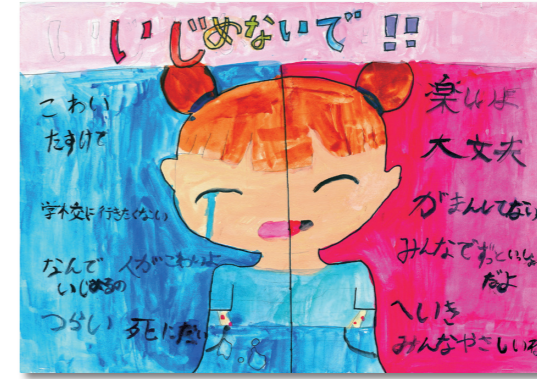 いじめないで!!
こわい
たすけて
学校に行きたくない
なんで
いじめるの
人がこわいよ
つらい
死にたい
楽しいよ
大丈夫
がまんしてない
みんなでずっといっしょ
だよ
へいき
みんなやさしいね